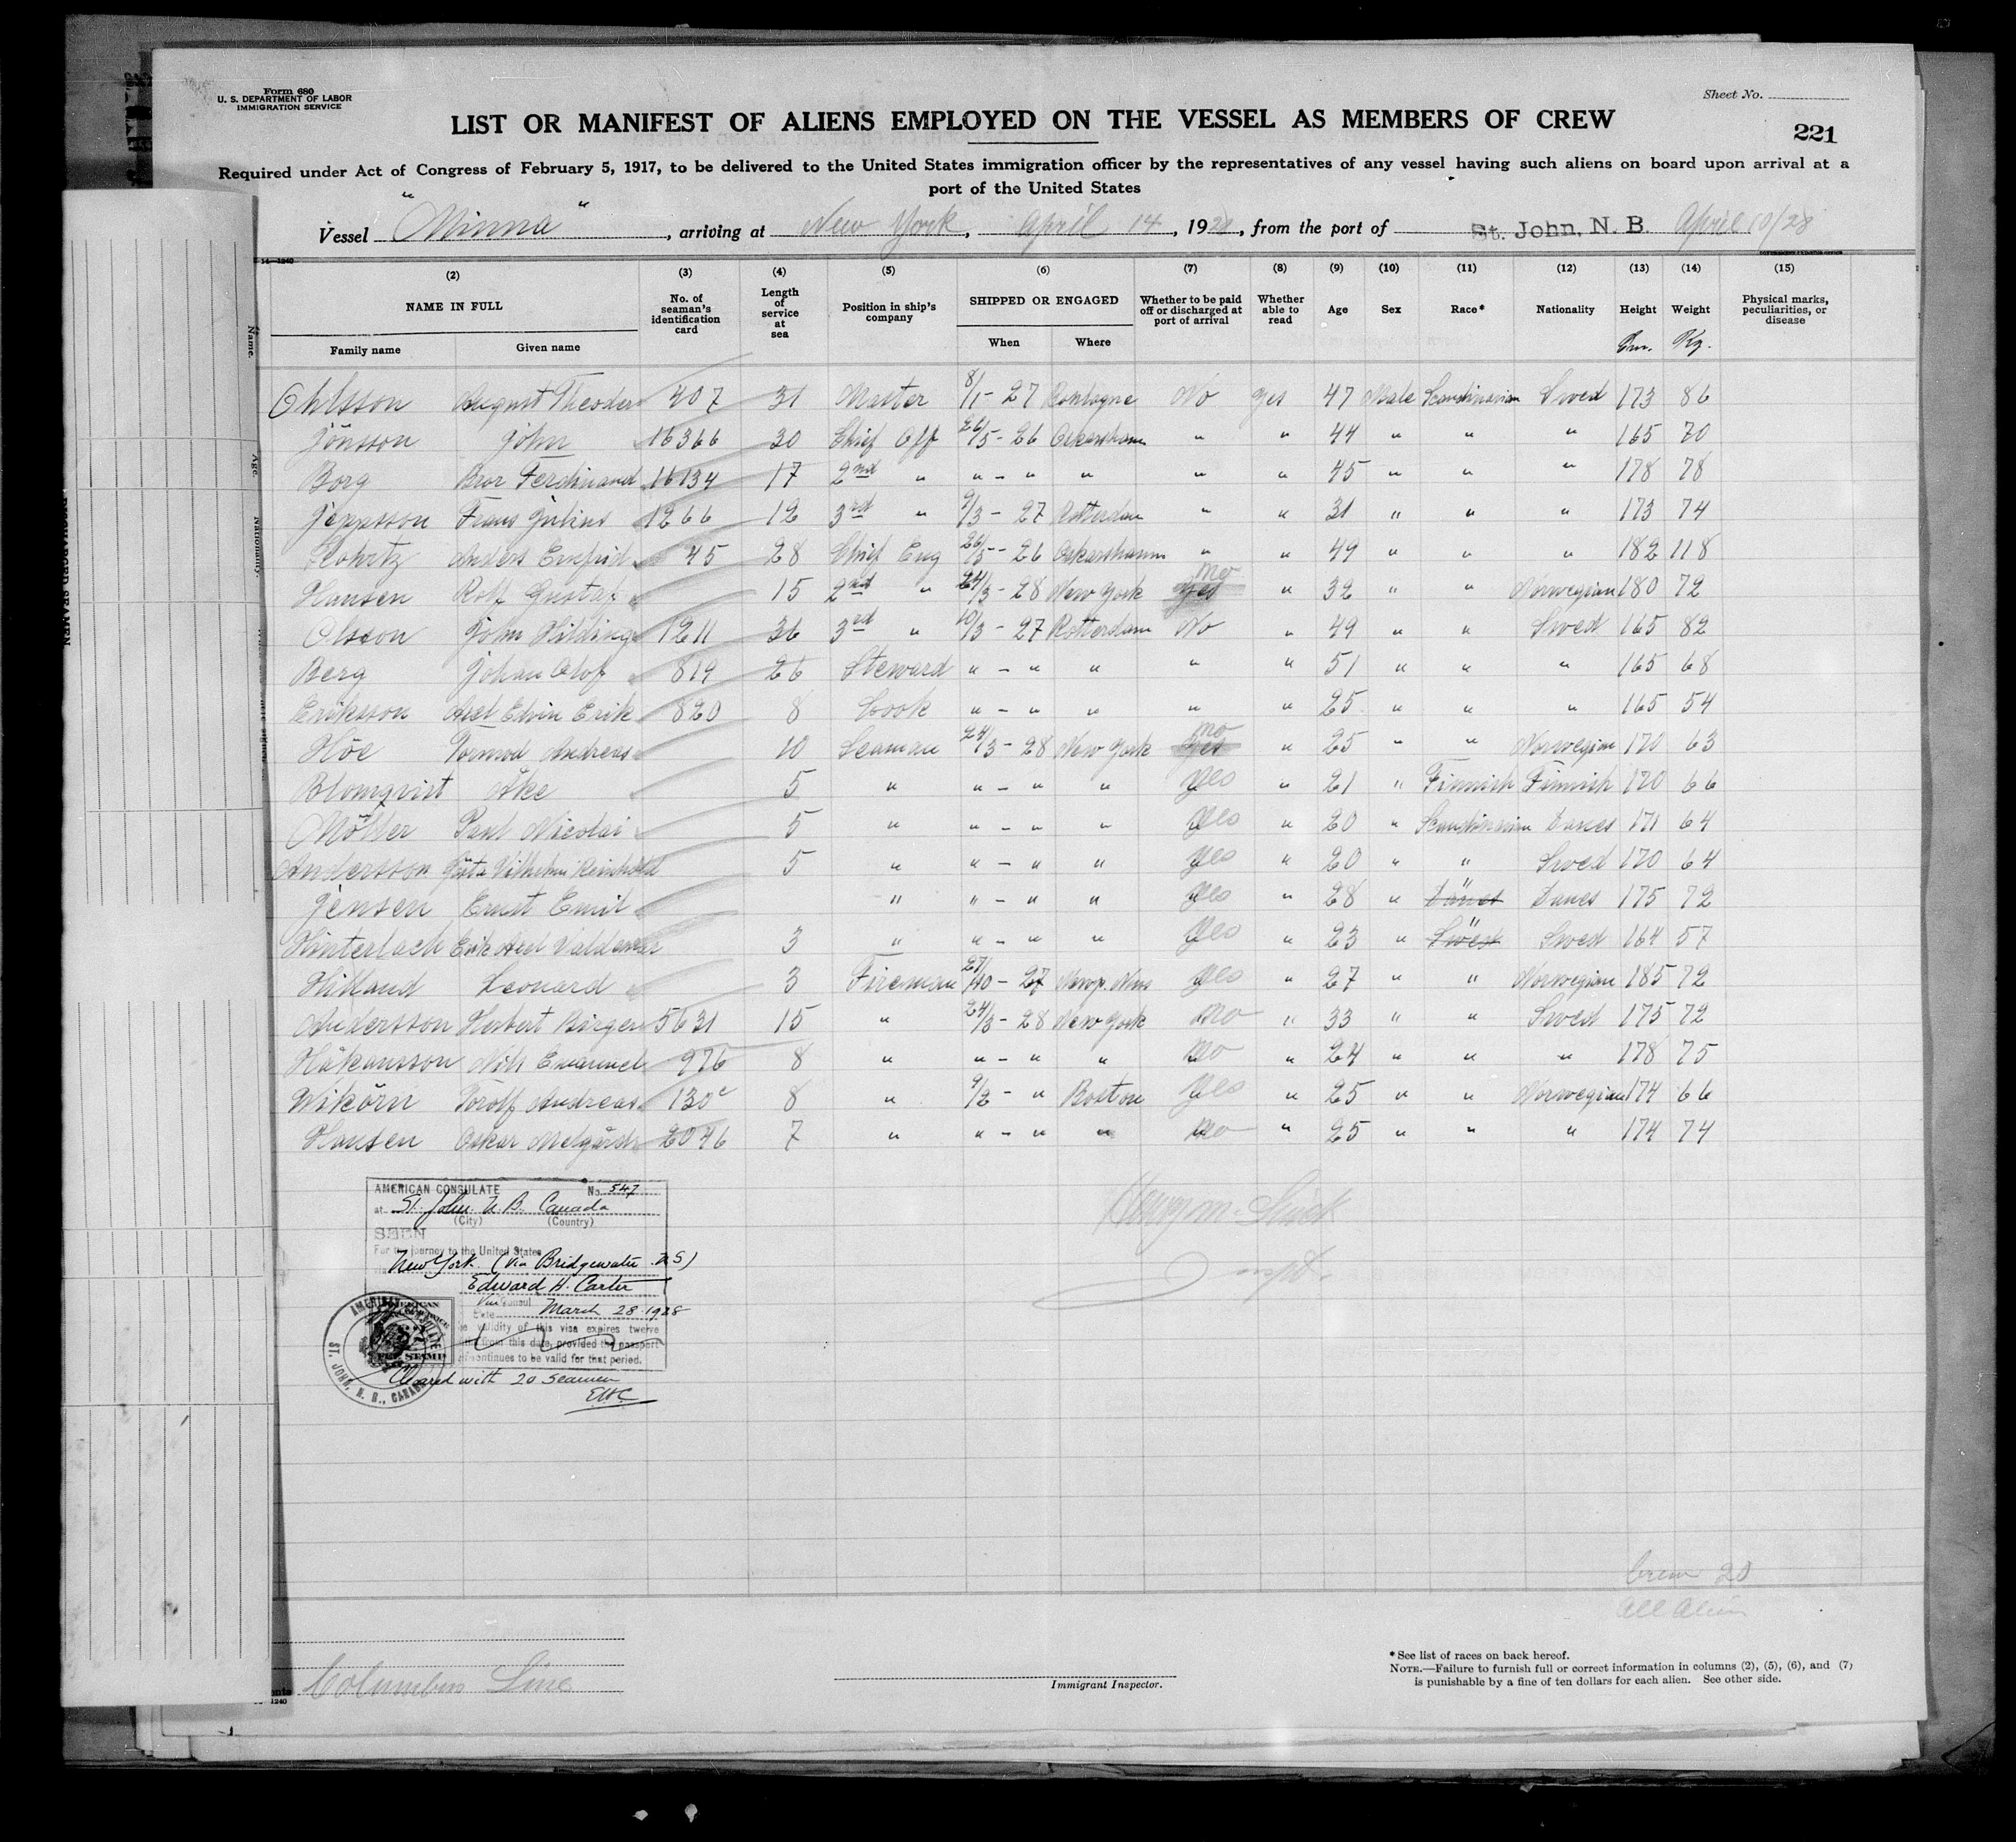 Form 680
U. S. DEPARTMENT OF LABOR
IMMIGRATION SERVICE
Sheet No.
LIST OR MANIFEST OF ALIENS EMPLOYED ON THE VESSEL AS MEMBERS OF CREW
221
Required under Act of Congress of February 5, 1917, to be delivered to the United States immigration officer by the representatives of any vessel having such aliens on board upon arrival at a
port of the United States
Vessel "Minna", arriving at New York, April 14, 1928, from the port of St. John, N. B. April 10/28
14—1240
(2) (3) (4) (5) (6) (7) (8) (9) (10) (11) (12) (13) (14) (15)
NAME IN FULL No. of seaman's identification card Length of service at sea Position in ship's company SHIPPED OR ENGAGED Whether to be paid off or discharged at port of arrival Whether able to read Age Sex Race* Nationality Height Weight Physical marks, peculiarities, or disease
Family name Given name When Where Cm. Kg.
Ohlsson August Theodor 407 31 Master 8/1 - 27 No Yes 47 Male Scandinavian Swed 173 86
Jönsson John 16366 30 Chief Off 26/5 - 26 Oskarshamn " " 44 " " " 165 70
Borg Bror Ferdinand 16134 17 2nd " " - " " " " 45 " " " 178 78
Jeppsson Frans Julius 1266 12 3rd " 9/3 - 27 Rotterdam " " 31 " " " 173 74
Anders 45 28 Chief Eng 26/5 - 26 Oskarshamn " " 49 " " " 182 118
Hansen Rolf Gustaf 15 2nd " 24/3 - 28 New York Yes No " 32 " " Norwegian 180 72
Olsson John Hilding 1211 36 3rd " 10/3 - 27 Rotterdam No " 49 " " Swed 165 82
Berg Johan Olof 819 26 Steward " - " " " " 51 " " " 165 68
Eriksson Axel Edvin Erik 820 8 Cook " - " " " " 25 " " " 165 54
Höe Tormod Andreas 10 Seaman 24/3 - 28 New York Yes No " 25 " " Norwegian 170 63
Blomqvist Åke 5 " " - " " Yes " 21 " Finnish Finnish 170 66
Möller Paul Nicolai 5 " " - " " Yes " 20 " Scandinavian Danes 171 64
Andersson Gösta Vilhelm Reinhold 5 " " - " " Yes " 20 " " Swed 170 64
Jensen Ernst Emil " " - " " Yes " 28 " Danes " Danes 175 72
Hinterlach Erik Axel Valdemar 3 " " - " " Yes " 23 " Swed " Swed 164 57
Hilland Leonard 3 Fireman 27/10 - 27 Newp. News Yes " 27 " " Norwegian 185 72
Andersson Herbert Birger 5631 15 " 24/3 - 28 New York No " 33 " " Swed 175 72
Håkansson Nils Emanuel 976 8 " " - " " No " 24 " " " 178 75
Wikörn Torolf Andreas 130 8 " 9/2 - " Boston Yes " 25 " " Norwegian 174 66
Hansen Oskar 2046 7 " " - " " No " 25 " " " 174 74
AMERICAN CONSULATE No. 547
at St. John N. B. Canada
(City) (Country)
SEEN
For the journey to the United States
New York (via Bridgewater N S)
Edward H. Carter
Vice Consul
Date March 28 1928
validity of this visa expires twelve
from this date, provided the passport
continues to be valid for that period.
AMERICAN CONSULATE
ST. JOHN, N. B., CANADA
FEE STAMP
Cleared with 20 seamen
EHC
Henry M.
Insptr.
Crew 20
All Alien
Columbus Line
Immigrant Inspector.
*See list of races on back hereof.
NOTE.—Failure to furnish full or correct information in columns (2), (5), (6), and (7)
is punishable by a fine of ten dollars for each alien. See other side.
1240
Name.
Age.
Nationality.